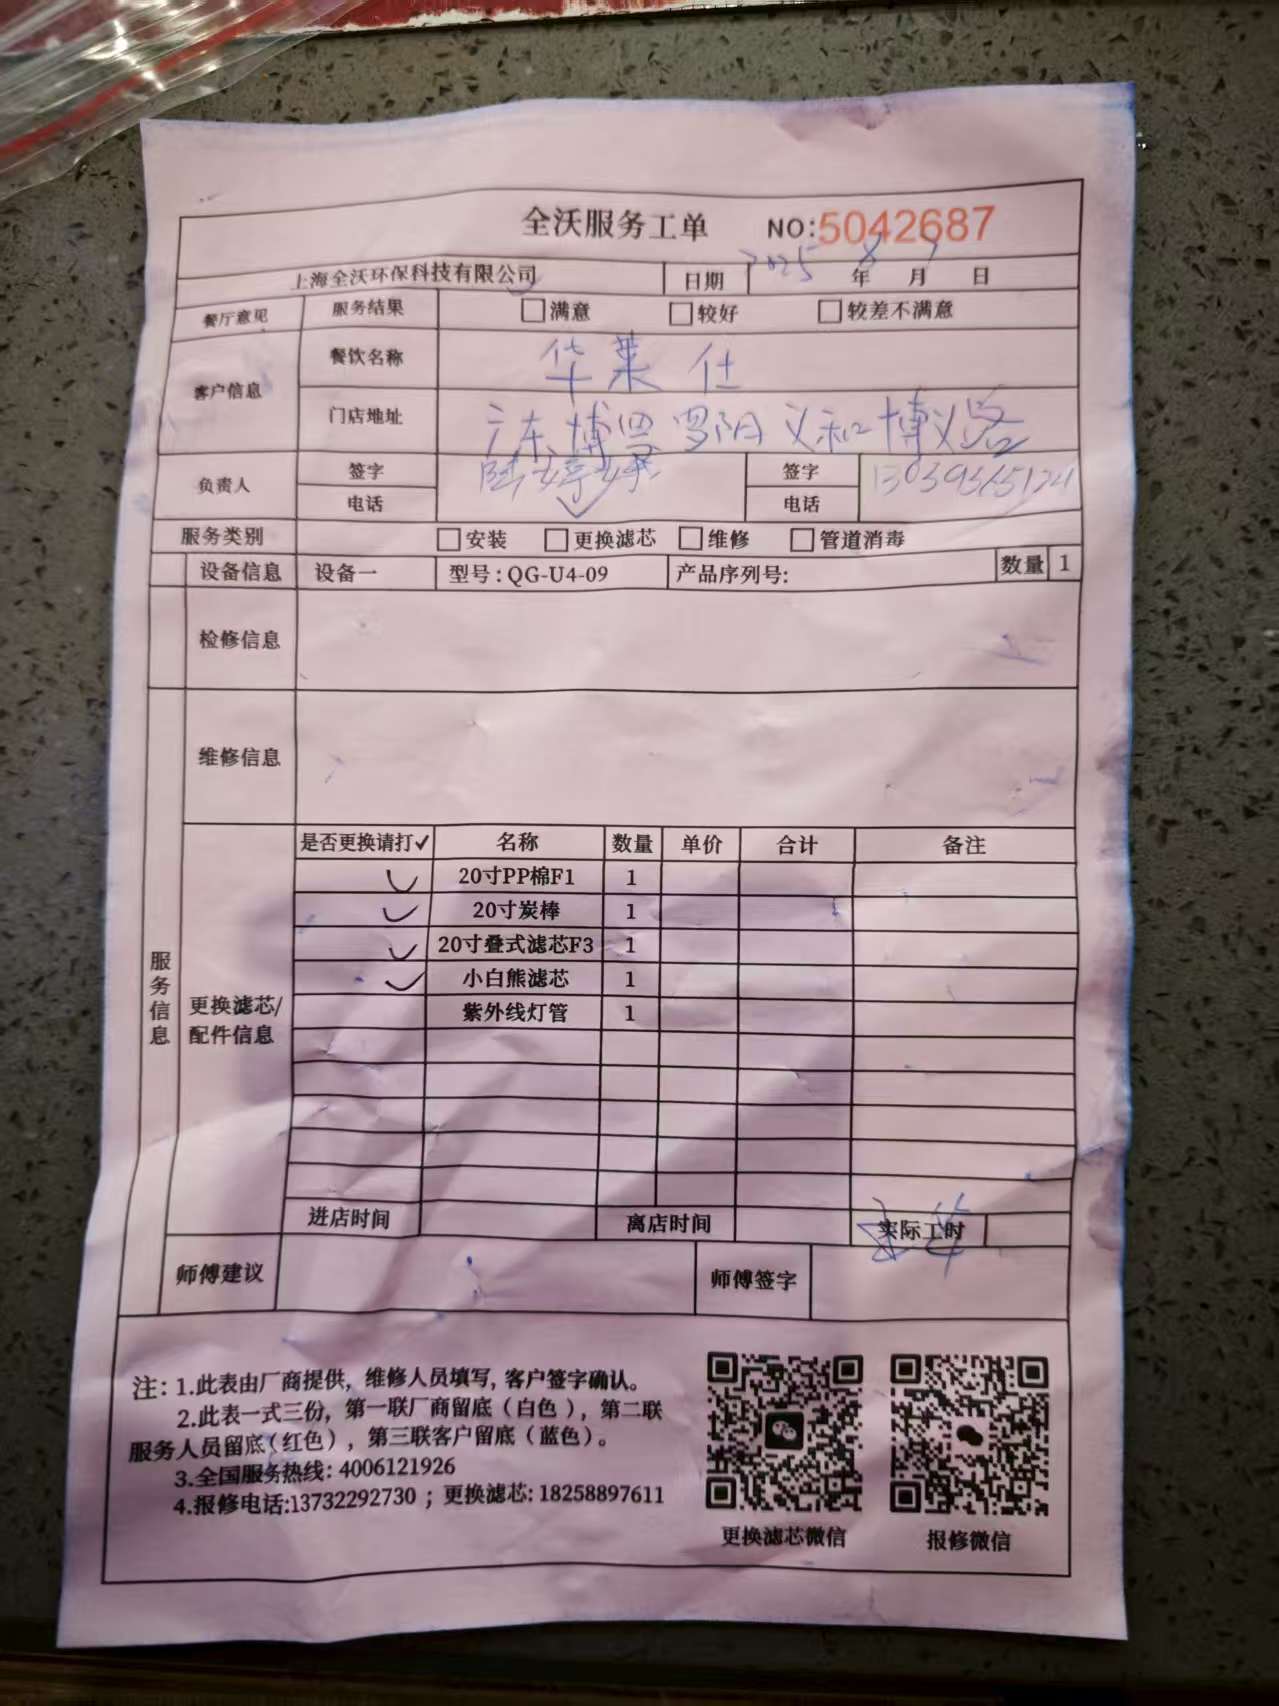 全沃服务工单 NO:5042687
上海全沃环保科技有限公司 日期 2025年8月7日
餐厅意见 服务结果 □满意 □较好 □较差不满意
客户信息 餐饮名称 华莱仕
门店地址 广东博罗罗阳义和博义路
负责人 签字 陆婷婷 签字
电话 电话
服务类别 □安装 □更换滤芯 □维修 □管道消毒
设备信息 设备一 型号:QG-U4-09 产品序列号: 数量 1
检修信息
维修信息
服务信息
更换滤芯/配件信息
是否更换请打✓ 名称 数量 单价 合计 备注
✓ 20寸PP棉F1 1
✓ 20寸炭棒 1
✓ 20寸叠式滤芯F3 1
✓ 小白熊滤芯 1
紫外线灯管 1
进店时间 离店时间 实际工时
师傅建议 师傅签字
注:1.此表由厂商提供,维修人员填写,客户签字确认。
2.此表一式三份,第一联厂商留底(白色),第二联
服务人员留底(红色),第三联客户留底(蓝色)。
3.全国服务热线:4006121926
4.报修电话:13732292730;更换滤芯:18258897611
更换滤芯微信 报修微信